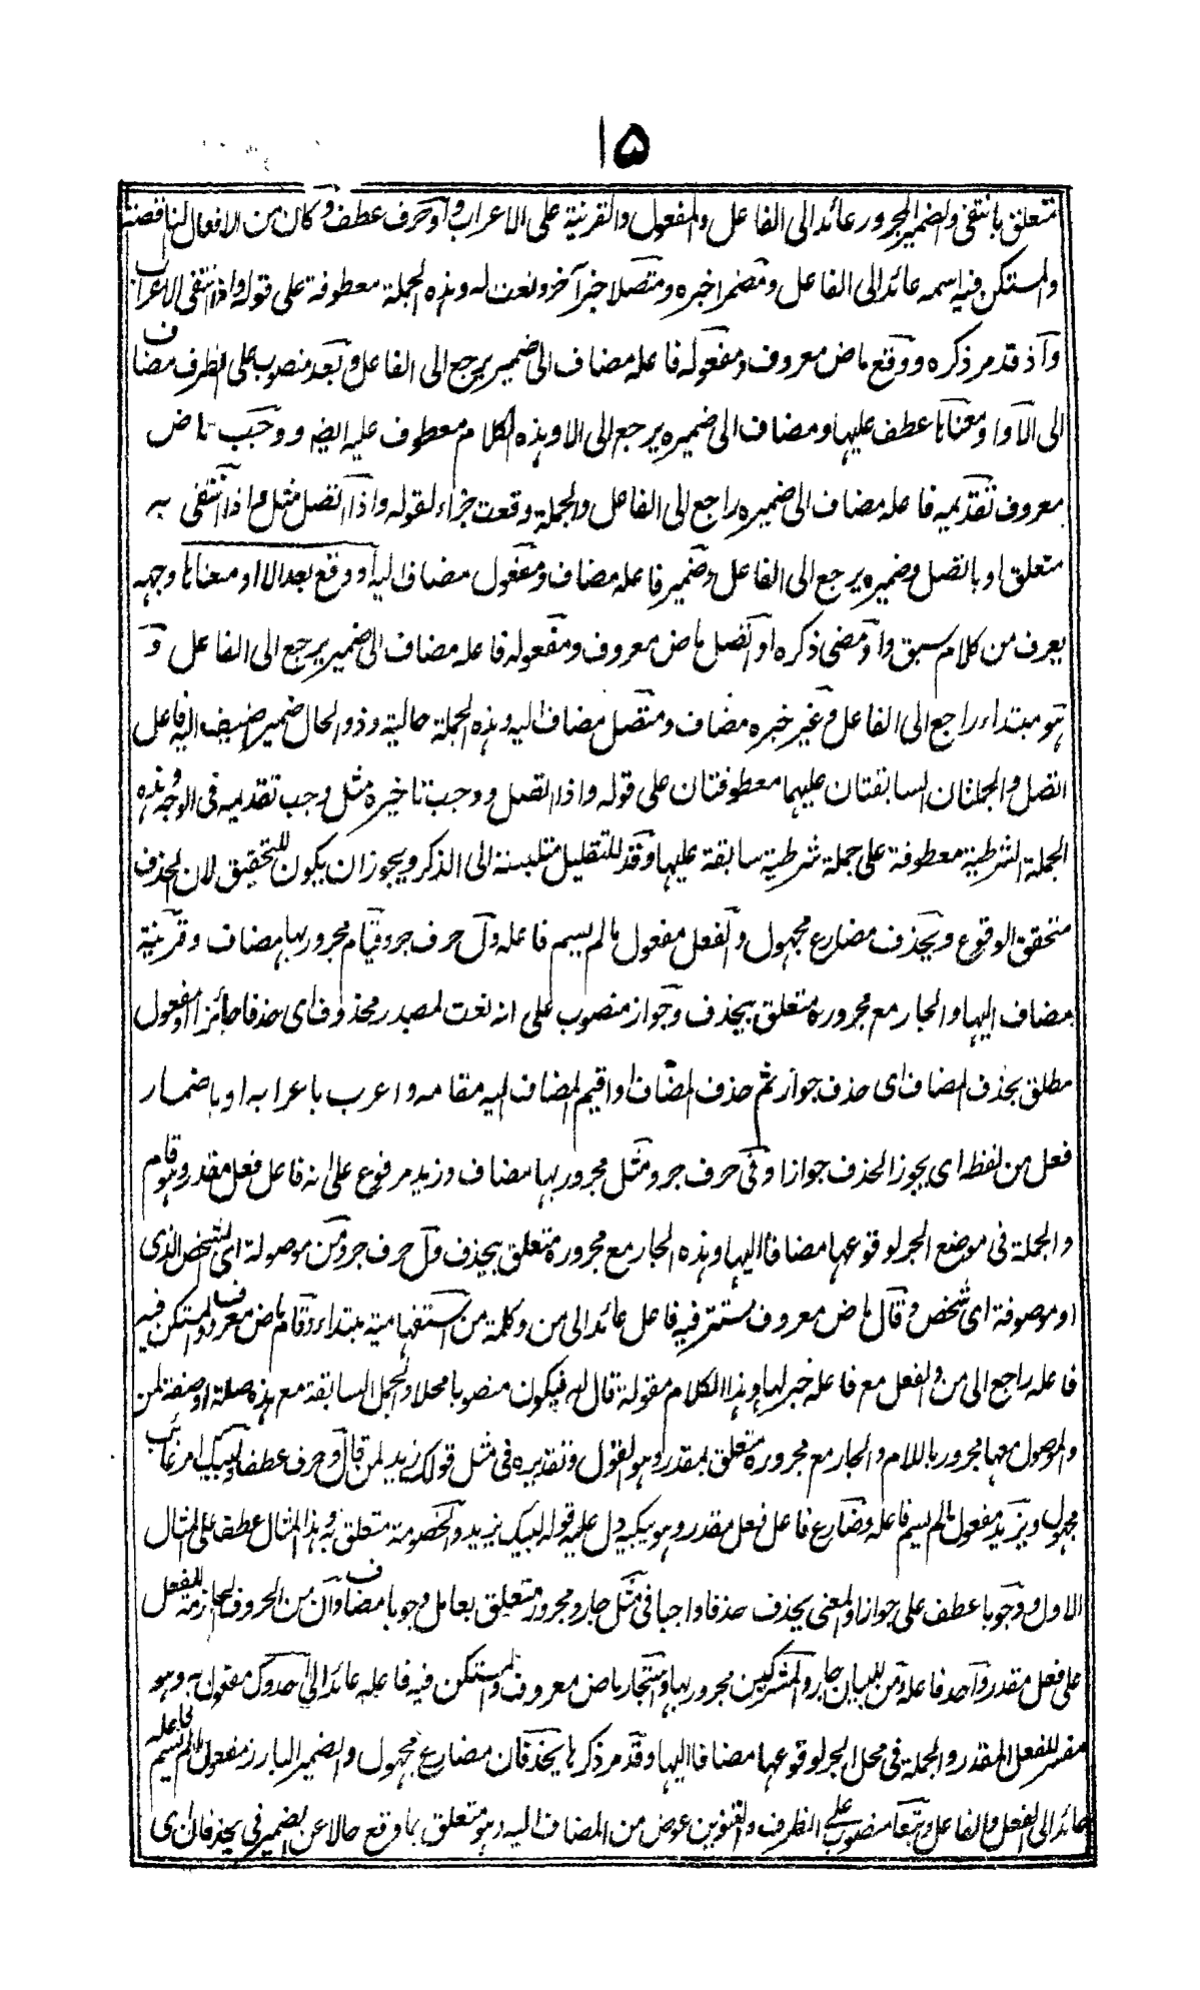 ۱۵
متعلق بانتفی والضمیر المجرور عائد الی الفاعل والمفعول والقرینة علی الاعراب واو حرف عطف وکان من الافعال الناقصة
والمستکن فیه اسمه عائد الی الفاعل ومضمرا خبره ومتصلا خبر آخر ونعت له وهذه الجملة معطوفة علی قوله واذا انتفی الاعراب
واذ قد مر ذکره ووقع ماض معروف ومفعوله فاعله مضاف الی ضمیر یرجع الی الفاعل وبعد منصوب علی الظرف مضاف
الی الا واو معناها عطف علیها ومضاف الی ضمیره یرجع الی الا وهذه الکلام معطوف علیه ایضا ووجب ماض
معروف تقدیمه فاعله مضاف الی ضمیره راجع الی الفاعل والجملة وقعت جزاء لقوله واذا اتصل مثل واذا انتفی به
متعلق او باتصل وضمیره یرجع الی الفاعل وضمیر فاعله مضاف ومفعول مضاف الیه او وقع بعد الا او معناها وجهه
یعرف من کلام سبق واو مضی ذکره او اتصل ماض معروف ومفعوله فاعله مضاف الی ضمیر یرجع الی الفاعل و
هو مبتداء راجع الی الفاعل وغیر خبره مضاف ومتصل مضاف الیه وهذه الجملة حالیة وذو الحال ضمیر اضیف الیه فاعل
اتصل والجملتان السابقتان علیهما معطوفتان علی قوله واذا اتصل ووجب تاخیره مثل وجب تقدیمه فی الوجه وهذه
الجملة الشرطیة معطوفة علی جملة شرطیة سابقة علیها وقد للتقلیل متلبسة الی الذکر ویجوز ان یکون للتحقیق لان الحذف
متحقق الوقوع ویحذف مضارع مجهول والفعل مفعول مالم یسم فاعله ول حرف جر وقیام مجرور بها مضاف وقرینة
مضاف الیها والجار مع مجروره متعلق بیحذف وجوازا منصوب علی انه نعت لمصدر محذوف ای حذفا جائزا او مفعول
مطلق بحذف المضاف ای حذف جواز ثم حذف المضاف واقیم المضاف الیه مقامه واعرب باعرابه او باضمار
فعل من لفظه ای یجوز الحذف جوازا وفی حرف جر ومثل مجرور بها مضاف وزید مرفوع علی انه فاعل فعل مقدر وهو قام
والجملة فی موضع الجر لوقوعها مضافا الیها وهذه الجار مع مجروره متعلق بیحذف ول حرف جر ومن موصولة ای الشخص الذی
او موصوفة ای شخص وقال ماض معروف مستتر فیه فاعل عائد الی من وکلمة من استفهامیة مبتداء وقام ماض معروف والمستکن فیه
فاعله راجع الی من والفعل مع فاعله خبر لها وهذا الکلام مقولة قال له فیکون منصوبا محلا والجمل السابقة مع هذه صلة او صفة لمن
والموصول معها مجرور باللام والجار مع مجروره متعلق بمقدر وهو القول وتقدیره فی مثل قولک زید لمن قال و حرف عطف ولیبک امر غائب
مجهول ویزید مفعول مالم یسم فاعله وضارع فاعل فعل مقدر وهو یبکیه دل علیه قوله لیبک یزید والخصومة متعلق به وهذا المثال عطف علی المثال
الاول ووجوبا عطف علی جوازا والمعنی یحذف حذفا واجبا فی مثل جار ومجرور متعلق بعامل وجوبا مضاف وان من الحروف الجازمة للفعل
علی فعل مقدر واحد فاعله ومن للبیان جار والمشرکین مجرور بها واستجار ماض معروف والمستکن فیه فاعله عائد الی احد وک مفعول به وهو
مفسر للفعل المقدر والجملة فی محل الجر لوقوعها مضافا الیها وقد مر ذکرها یحذفان مضارع مجهول والضمیر البارز مفعول مالم یسم فاعله
عائد الی الفعل والفاعل ومعا منصوب علی الظرف والتنوین عوض من المضاف الیه وهو متعلق بما وقع حالا عن الضمیر فی یحذفان ای